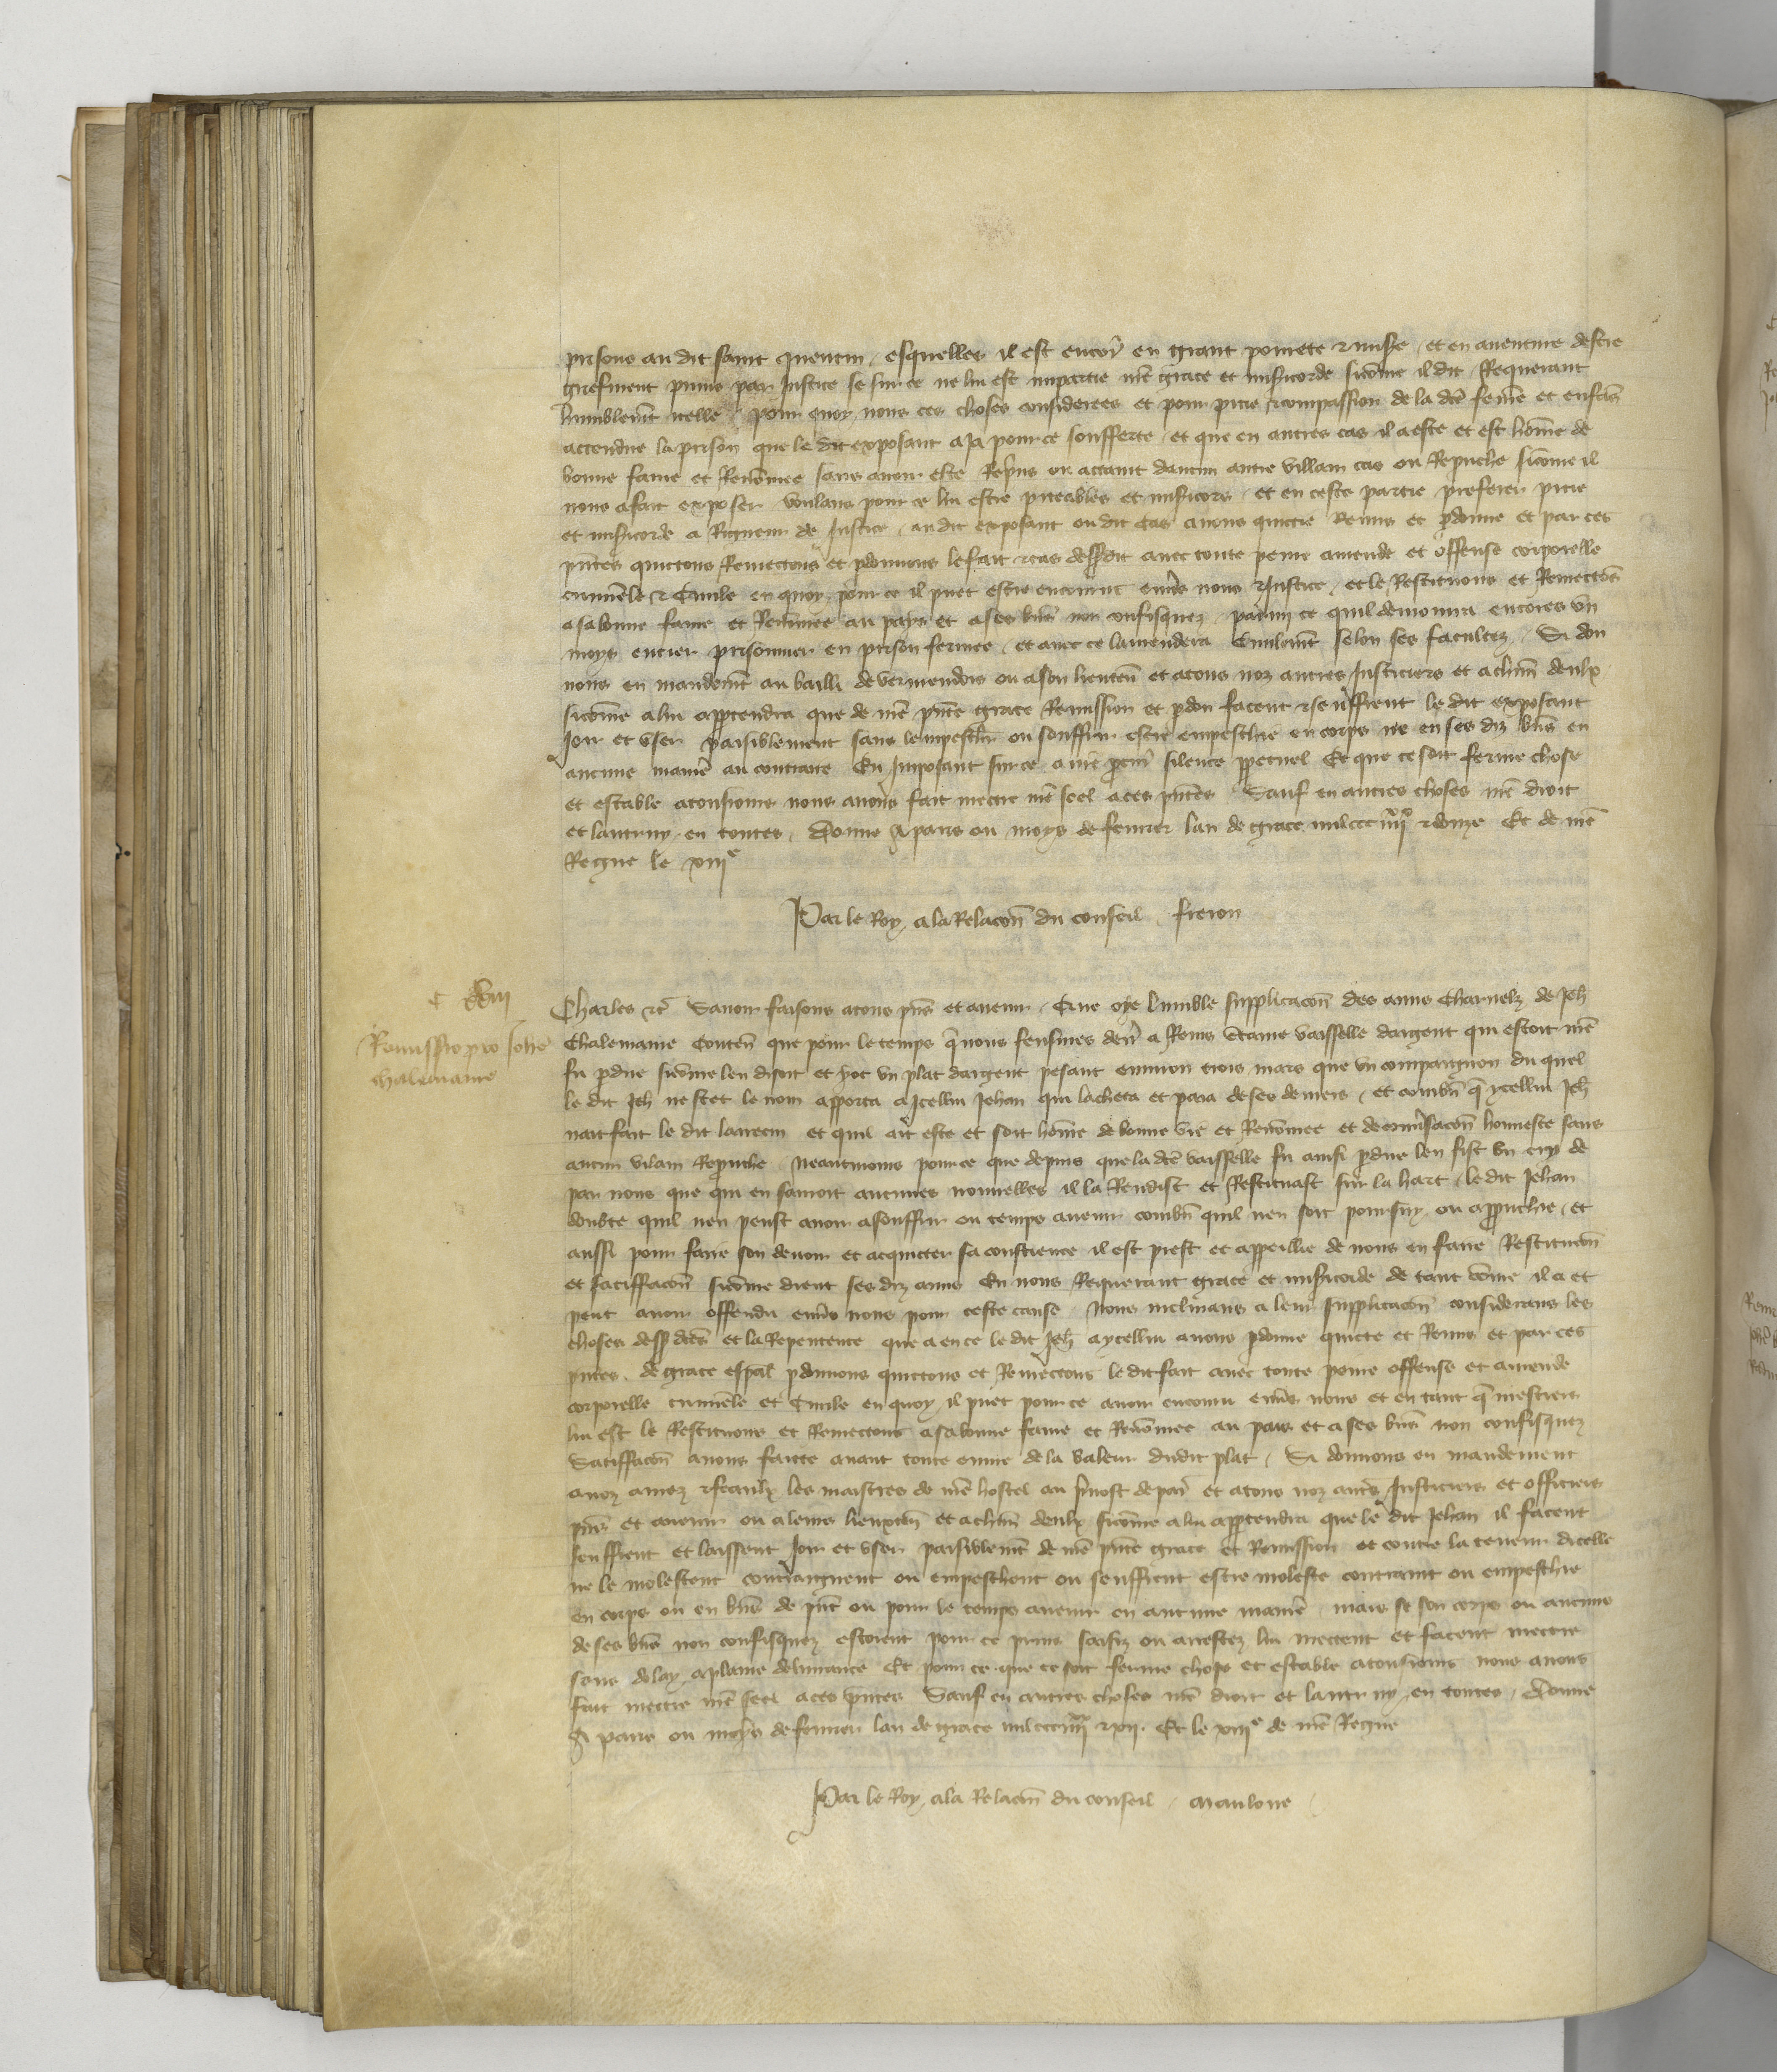 prisons au dit saint quentin esquelles il est encor en grant povrete & misere et en aventure destre
griefment puniz par Justice se sur ce ne lui est impartie nre grace et misicorde sicome il dit Requerant
humblemt icelle pour quoy nous ces choses considerees et pour pitie & compassion de la dte feme et enfans
attendue la prison que le dit exposant a Ja pour ce soufferte et que en autres cas il a este et est home de
bonne fame et Renomee sans avoir este Repris ou attaint daucun autre villain cas ou Reprouche sicome il
nous a fait exposer voulans pour ce lui estre piteables et misicors et en ceste partie preferer pitie
et misicorde a Rigueur de Justice au dit exposant ou dit cas avons quictie Remis et pdonne et par ces
pntes quictons Remectons et pdonnons le fait & cas dessusdit avec toute peine amende et offense corporelle
criminele & Civile en quoy pour ce il puet estre encouruz envers nous & Justice et le Restituons et Remectons
a sa bonne fame et Renomee au pays et a ses biens non confisquez parmi ce quil demourra encores un
moys entier prisonnier en prison fermee et avec ce lamendera Civilemt selon ses facultez Si don
nons en mandemt au bailli de vermendois ou a son lieuten et a tous noz autres Justiciers et a chun deulx
sicome a lui appartendra que de nre pnte grace Remission et pdon facent & seuffrent le dit exposant
Joir et user paisiblement sans lempeschier ou souffrir estre empeschie en corps ne en ses diz biens en
aucune maniere au contraire En Imposant sur ce a nre procur silence ppetuel Et que ce soit ferme chose
et estable a tousiours nous avons fait mectre nre seel a ces pntes Sauf en autres choses nre droit
et lautruy en toutes Donne A paris ou moys de fevrier lan de grace mil ccc iiiixx & douze Et de nre
Regne le xiiie
Par le Roy a la Relacon du conseil freron
C xxiii
Charles &c Savoir faisons a tous pns et avenir Que oye lumble supplicacon des amis Charnelz de Jeh
Remissio pro Johe
chalemaine
Chalemaine Conten que pour le temps q nous feusmes a Reins Ctaine vaisselle dargent qui estoit nre
fu pdue sicome len disoit et y ot un plat dargent pesant environ trois mars que un compaignon du quel
le dit Jeh ne scet le nom apporta a Jcellui Jehan qui lacheta et paia de ses deniers et combn q ycellui Jeh
nait fait le dit larrecin et quil ait este et soit home de bonne vie et Renomee et de conversacon honneste sans
aucun vilain Reprouche neantmoins pour ce que depuis que la dte vaisselle fu ainsi pdue len fist un cry de
par nous que qui en sauroit aucunes nouvelles il la Rendist et Restituast sur la hart le dit Jehan
doubte quil nen peust avoir a souffrir ou temps avenir combn quil nen soit poursuy ou approuchie et
aussi pour faire son devoir et acquicter sa conscience il est prest et appeillie de nous en faire Restitucon
et satiffacon sicome dient ses diz amis En nous Requerant grace et misicorde de tant come il a et
peut avoir offendu envers nous pour ceste cause Nous inclinans a leur supplicacon considerans les
choses dessus dtes et la Repentence que a en ce le dit Jeh a ycellui avons pdonne quicte et Remis et par ces
pntes de grace espal pdonnons quictons et Remectons le dit fait avec toute peine offense et amende
corporelle criminele et Civile en quoy il puet pour ce avoir encouru envers nous et en tant q mestiers
lui est le Restituons et Remectons a sa bonne fame et Renomee au pais et a ses biens non confisquez
Satiffacon avons faicte avant toute euvre de la valeur dudit plat Si donnons en mandement
a noz amez & feaulx les maistres de nre hostel au prevost de paris et a tous noz autres Justiciers et officiers
pns et avenir ou a leurs lieuxten et a chun deulx sicome a lui appartendra que le dit Jehan il facent
seuffrent et laissent Joir et user paisiblemt de nre pnte grace et Remission et contre la teneur dicelle
ne le molestent contraingnent ou empeschent ou seuffrent estre moleste contraint ou empeschie
en corps ou en biens de pnt ou pour le temps avenir en aucune maniere mais se son corps ou aucuns
de ses biens non confisquez estoient pour ce prins saisiz ou arrestez lui mectent et facent mectre
sans delay a plaine delivrance Et pour ce que ce soit ferme chose et estable a tousiours nous avons
fait mectre nre seel a ces pntes Sauf en autres choses nre droit et lautruy en toutes Donne
A paris ou moys de fevrier lan de grace mil ccc iiiixx & xii Et le xiiie de nre Regne
Par le Roy a la Relacon du conseil maulone